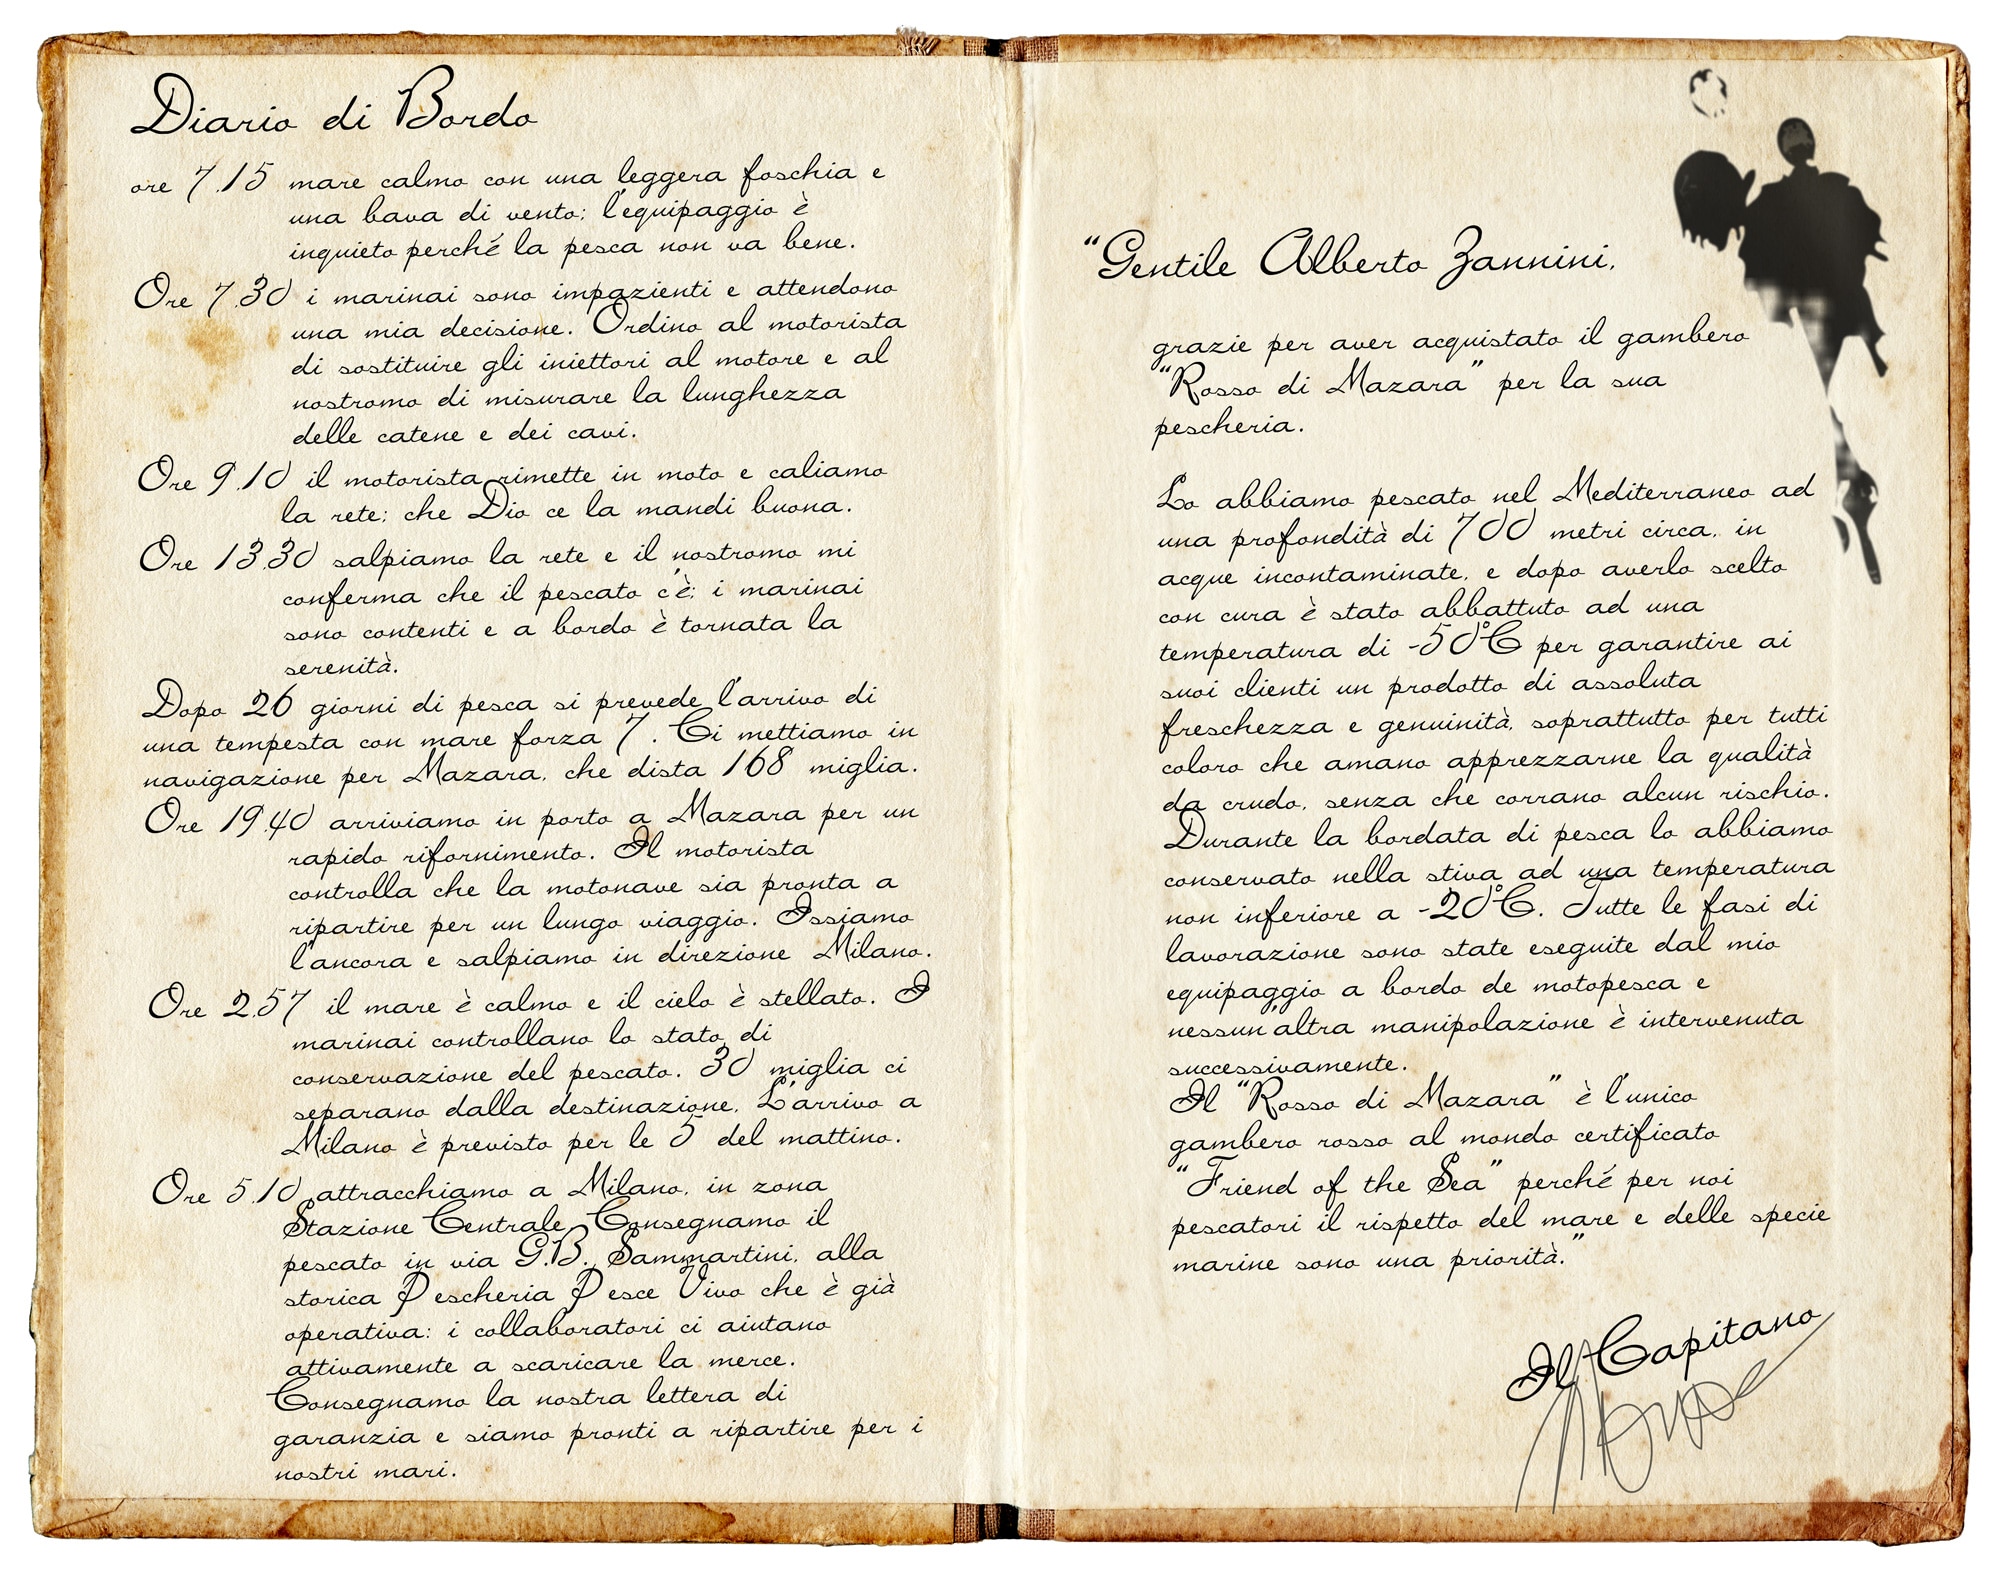 Diario di Bordo
ore 7.15 mare calmo con una leggera foschia e
una bava di vento; l'equipaggio è
inquieto perché la pesca non va bene.
Ore 7.30 i marinai sono impazienti e attendono
una mia decisione. Ordino al motorista
di sostituire gli iniettori al motore e al
nostromo di misurare la lunghezza
delle catene e dei cavi.
Ore 9.10 il motorista rimette in moto e caliamo
la rete; che Dio ce la mandi buona.
Ore 13.30 salpiamo la rete e il nostromo mi
conferma che il pescato c'è; i marinai
sono contenti e a bordo è tornata la
serenità.
Dopo 26 giorni di pesca si prevede l'arrivo di
una tempesta con mare forza 7. Ci mettiamo in
navigazione per Mazara, che dista 168 miglia.
Ore 19.40 arriviamo in porto a Mazara per un
rapido rifornimento. Il motorista
controlla che la motonave sia pronta a
ripartire per un lungo viaggio. Issiamo
l'ancora e salpiamo in direzione Milano.
Ore 2.57 il mare è calmo e il cielo è stellato. I
marinai controllano lo stato di
conservazione del pescato. 30 miglia ci
separano dalla destinazione. L'arrivo a
Milano è previsto per le 5 del mattino.
Ore 5.10 attracchiamo a Milano, in zona
Stazione Centrale. Consegnamo il
pescato in via G.B. Sammartini, alla
storica Pescheria Pesce Vivo che è già
operativa: i collaboratori ci aiutano
attivamente a scaricare la merce.
Consegnamo la nostra lettera di
garanzia e siamo pronti a ripartire per i
nostri mari.
"Gentile Alberto Zannini,
grazie per aver acquistato il gambero
"Rosso di Mazara" per la sua
pescheria.
Lo abbiamo pescato nel Mediterraneo ad
una profondità di 700 metri circa, in
acque incontaminate, e dopo averlo scelto
con cura è stato abbattuto ad una
temperatura di -50°C per garantire ai
suoi clienti un prodotto di assoluta
freschezza e genuinità, soprattutto per tutti
coloro che amano apprezzarne la qualità
da crudo, senza che corrano alcun rischio.
Durante la bordata di pesca lo abbiamo
conservato nella stiva ad una temperatura
non inferiore a -20°C. Tutte le fasi di
lavorazione sono state eseguite dal mio
equipaggio a bordo de motopesca e
nessun'altra manipolazione è intervenuta
successivamente.
Il "Rosso di Mazara" è l'unico
gambero rosso al mondo certificato
"Friend of the Sea" perché per noi
pescatori il rispetto del mare e delle specie
marine sono una priorità."
Il Capitano